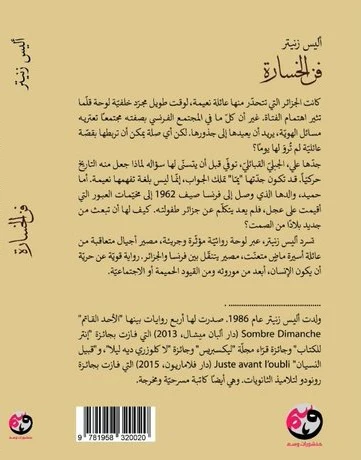 أليس زنيتر
فن الخسارة
كانت الجزائر التي تتحدّر منها عائلة نعيمة، لوقت طويل مجرّد خلفيّة لوحة قلّما
تثير اهتمام الفتاة. غير أن كلّ ما في المجتمع الفرنسي بصفته مجتمعاً تعتريه
مسائل الهويّة، يريد أن يعيدها إلى جذورها. لكن أي صلة يمكن أن تربطها بقصّة
عائليّة لم تُروَ لها يوماً؟
جدّها علي، الجبليّ القبائليّ، توفّي قبل أن يتسنّى لها سؤاله لماذا جعل منه التاريخ
حركيّاً. قد تكون جدّتها "يمّا" تملك الجواب، إنمّا ليس بلغة تفهمها نعيمة. أما
حميد، والدها الذي وصل إلى فرنسا صيف 1962 إلى مخيّمات العبور التي
أقيمت على عجل، فلم يعد يتكلّم عن جزائر طفولته. كيف لها أن تبعث من
جديد بلاداً من الصمت؟
تسرد أليس زنيتر، عبر لوحة روائيّة مؤثّرة وجريئة، مصير أجيال متعاقبة من
عائلة أسيرة ماضٍ متعنّت، مصير يتنقّل بين فرنسا والجزائر. رواية قويّة عن حريّة
أن يكون الإنسان، أبعد من موروثه ومن القيود الحميمة أو الاجتماعيّة.
ولدت أليس زنيتر عام 1986. صدرت لها أربع روايات بينها "الأحد القاتم"
Sombre Dimanche (دار ألبان ميشال، 2013) التي فازت بجائزة "إنتر
للكتاب" وجائزة قرّاء مجلّة "ليكسبريس" وجائزة "لا كلوزري دي ليلا"، و"قبيل
النسيان" Juste avant l'oubli (دار فلاماريون، 2015) التي فازت بجائزة
رونودو لتلاميذ الثانويات. وهي أيضاً كاتبة مسرحيّة ومخرجة.
9 781958 320020
منشورات وسم
أليس زنيتر
فن الخسارة
منشورات وسم